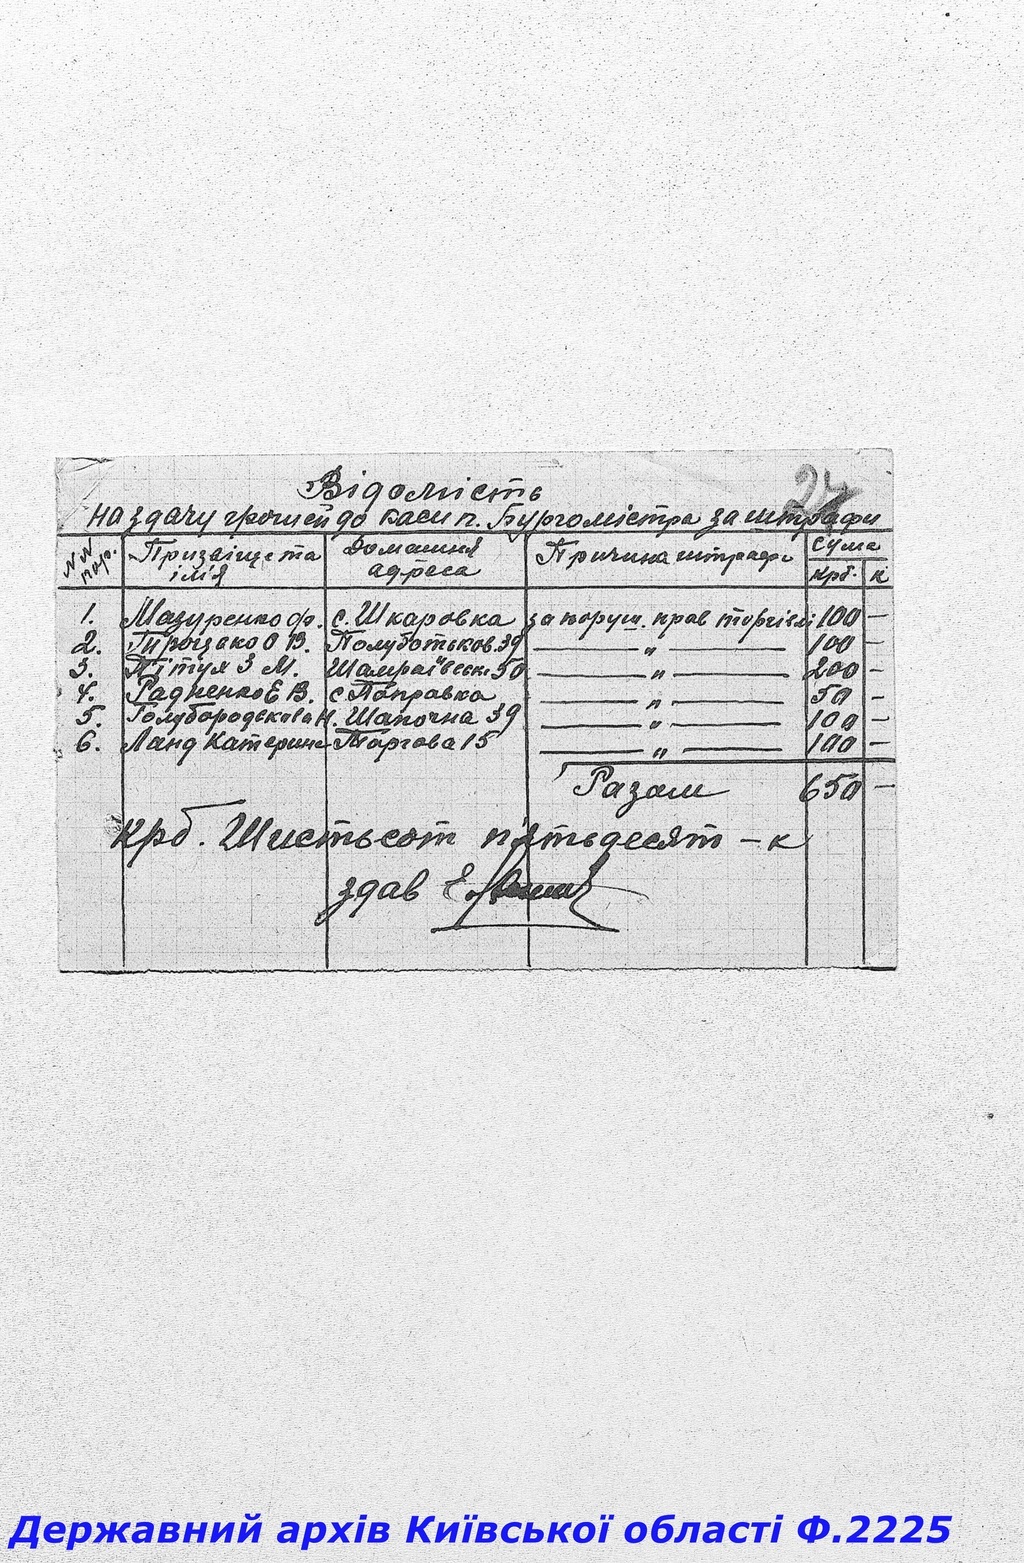 27
Відомість
на здачу грошей до каси п. Бургомістра за штрафи
NN пор. Призвіще та імія Домашня адреса Причина штрафу Сума крб. к
1. Мазуренко Ф. с. Шкаровка за поруш. прав торгівлі 100 —
2. О В. Полуботьков. 39 — „ — 100 —
3. Пітух З М. Шамраївськ 50 — „ — 200 —
4. Радненко Е В. с Поправка — „ — 50 —
5. Голубородькова Н. Шапочна 39 — „ — 100 —
6. Ланд Катерина Торгова 15 — „ — 100 —
Разам 650 —
крб. Шистьсот п'ятьдесят — к
здав Е.
Державний архів Київської області Ф.2225